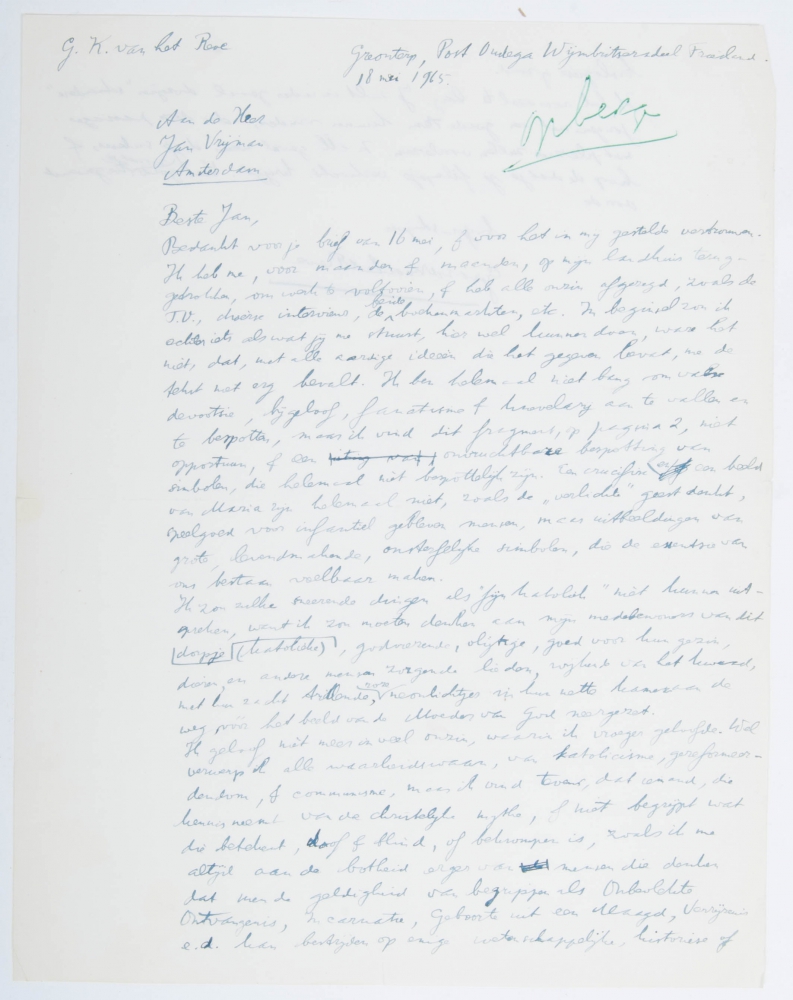 G. K. van het Reve
Greonterp, Post Oudega Wymbritseradeel Friesland.
18 mei 1965.
opberg
Aan de Heer
Jan Vrijman
Amsterdam
Beste Jan,
Bedankt voor je brief van 16 mei, & voor het in mij gestelde vertrouwen.
Ik heb me, voor maanden & maanden, op mijn landhuis terug-
getrokken, om werk te voltooien, & heb alle onzin afgezegd, zoals de
T.V., diverse interviews, beide boekenmarkten, etc. In beginsel zou ik
echter iets als wat jij me stuurt, hier wel kunnen doen, ware het
niet, dat, met alle aardige ideeën die het gegeven bevat, me de
tekst niet erg bevalt. Ik ben helemaal niet bang om valse
devootsie, bijgeloof, fanatisme & huichelarij aan te vallen en
te bespotten, maar ik vind dit fragment, op pagina 2, niet
opportuun, & een onvruchtbare bespotting van
simbolen, die helemaal niet bespottelijk zijn. Een crucifix een beeld
van Maria zijn helemaal niet, zoals de „verlichte" geest denkt,
speelgoed voor infantiel gebleven mensen, maar uitbeeldingen van
grote, levendmakende, onsterfelijke simbolen, die de essentie van
ons bestaan voelbaar maken.
Ik zou zulke dingen als "fijn katoliek" niet kunnen uit-
spreken, want ik zou moeten denken aan mijn medebewoners van dit
dorpje (katolieke), godvrezende, vlijtige, goed voor hun gezin,
dieren, en andere mensen zorgende lieden, wijd van het kwaad,
met hun zacht trillende, roze neonlichtjes in hun nette kamers aan de
weg vóór het beeld van de Moeder van God neergezet.
Ik geloof niet meer in veel onzin, waarin ik vroeger geloofde. Wel
verwerp ik alle waarheidswaan, van katolicisme, gereformeer-
dendom, & communisme, maar ik vind, dat iemand, die
kennis neemt van de christelijke mythe, & niet begrijpt wat
die betekent, doof & blind, of bekrompen is, zoals ik me
altijd aan de botheid erger van mensen die denken
dat men de geldigheid van begrippen als Onbevlekte
Ontvangenis, Incarnatie, Geboorte uit een Maagd, Verrijzenis
e.d. kan bestrijden op enige wetenschappelijke, historiese of